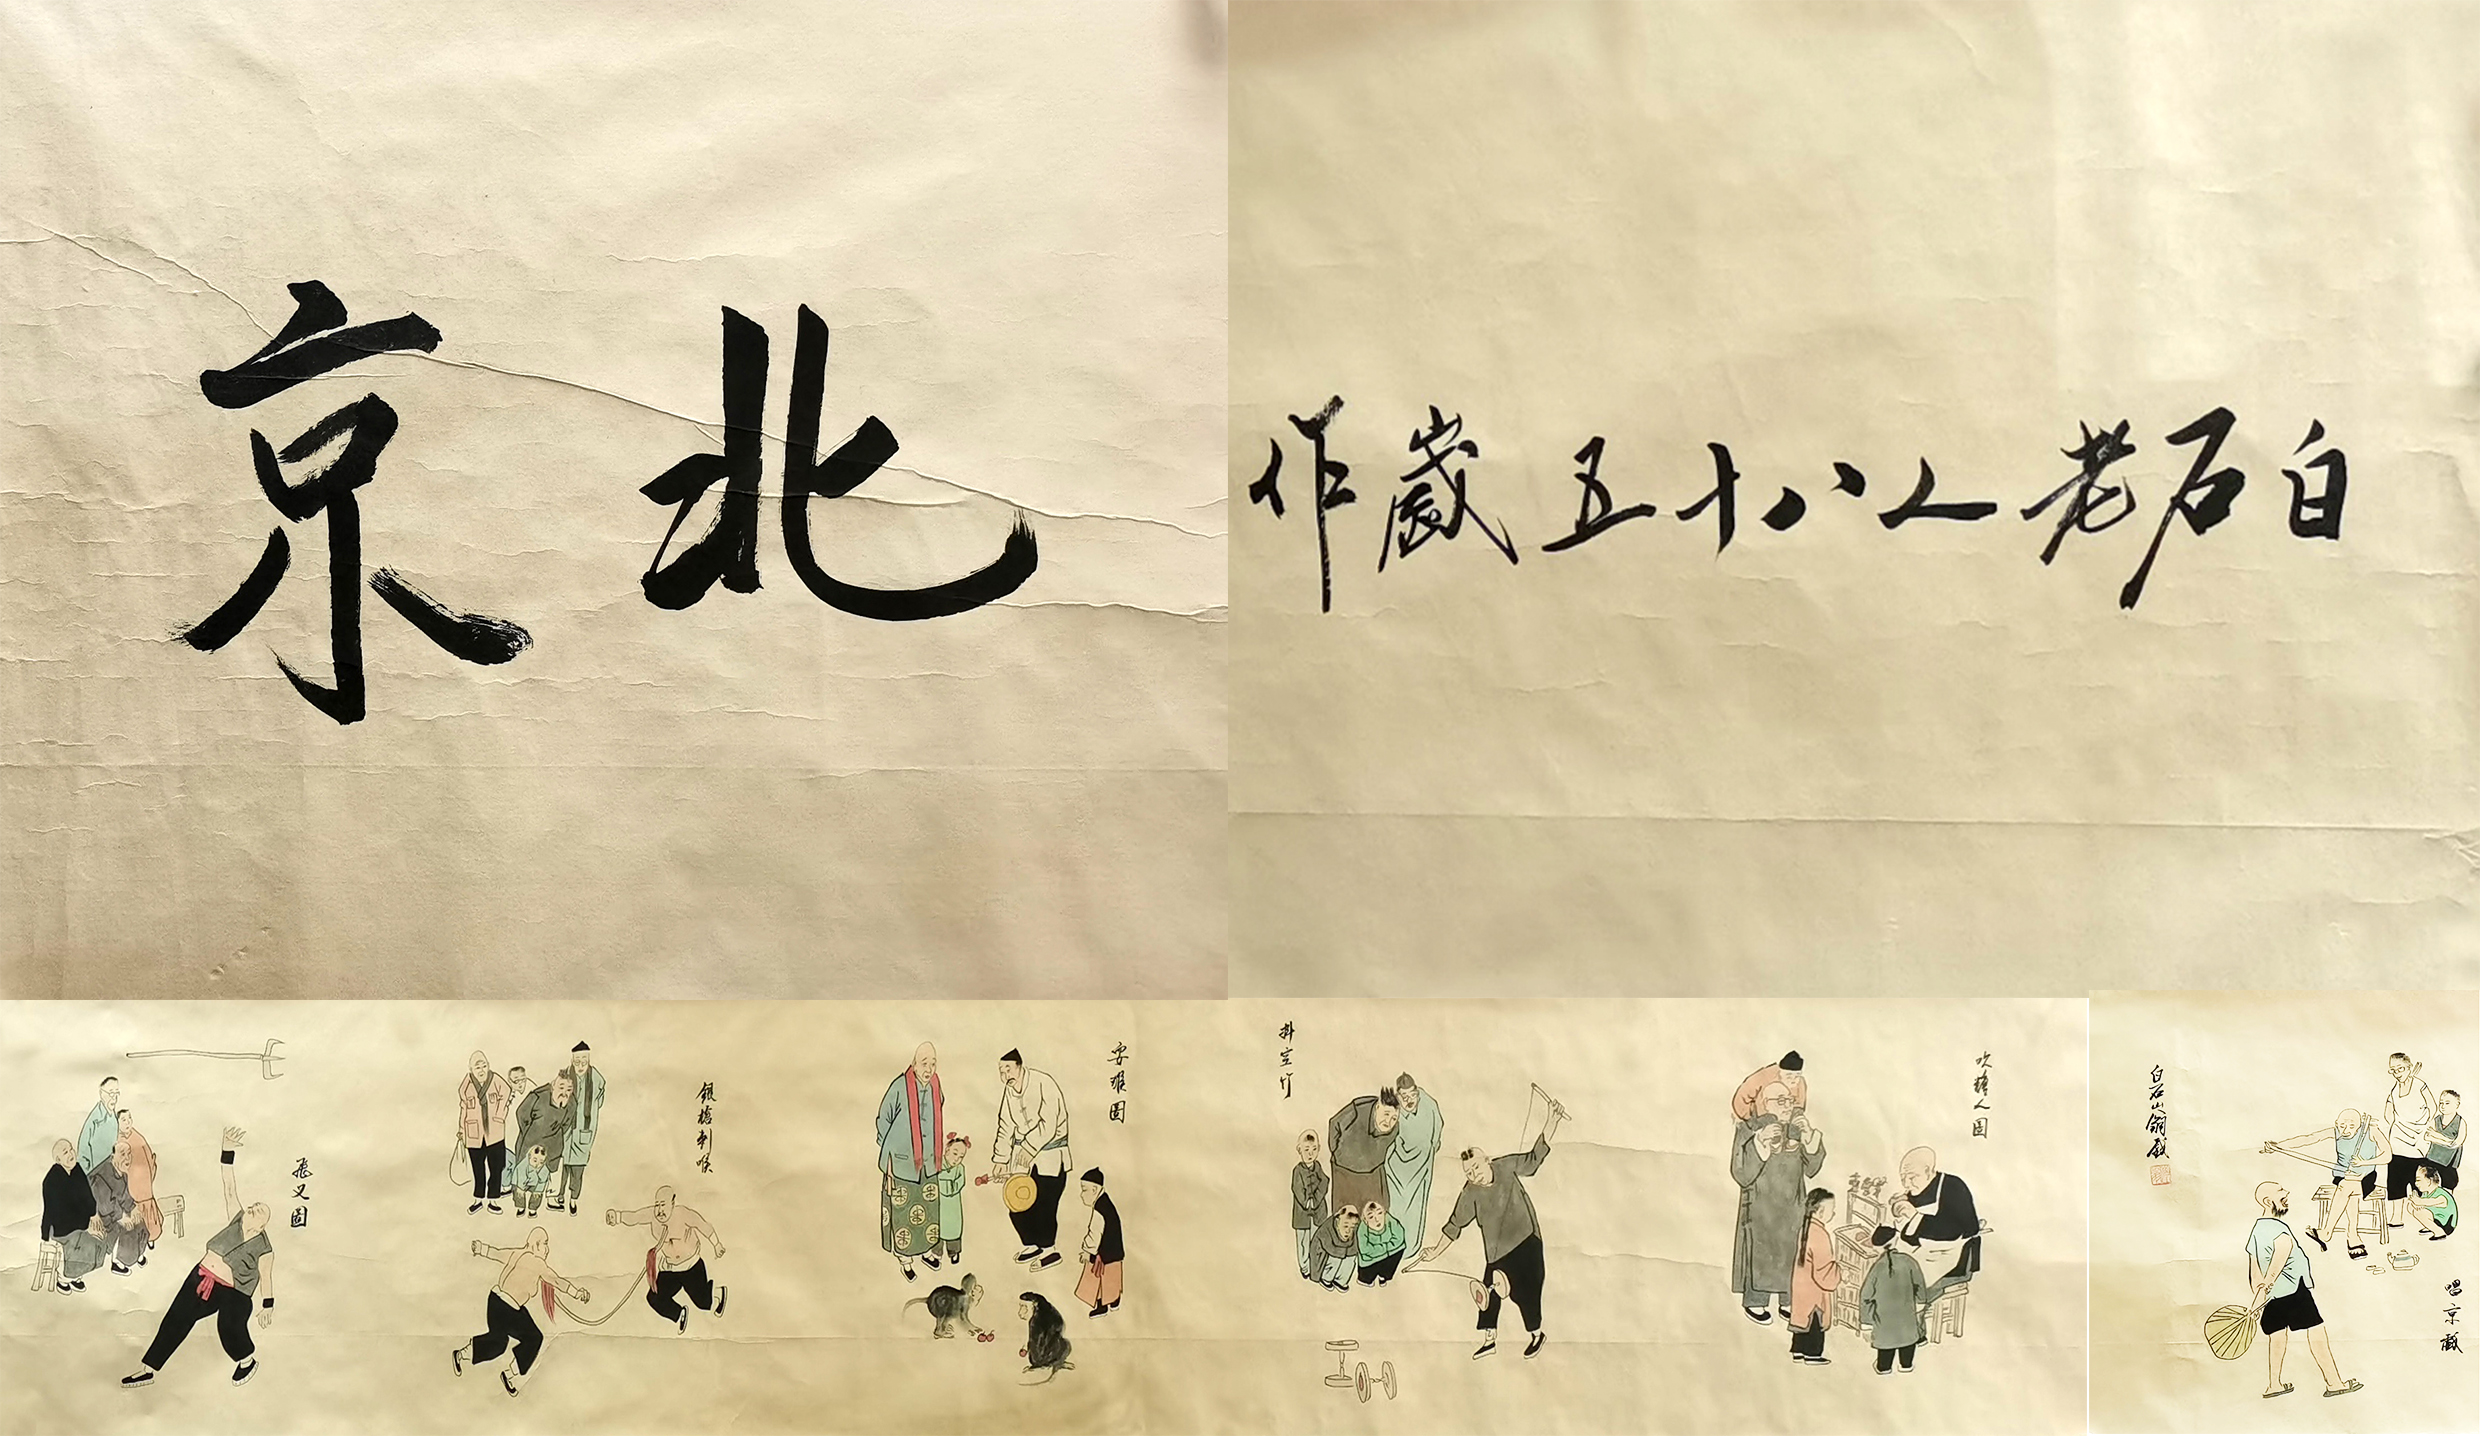 北京
白石老人八十五歲作
飛叉圖
銀槍刺喉
耍猴圖
抖空竹
吹糖人圖
白石山翁戲
唱京戲